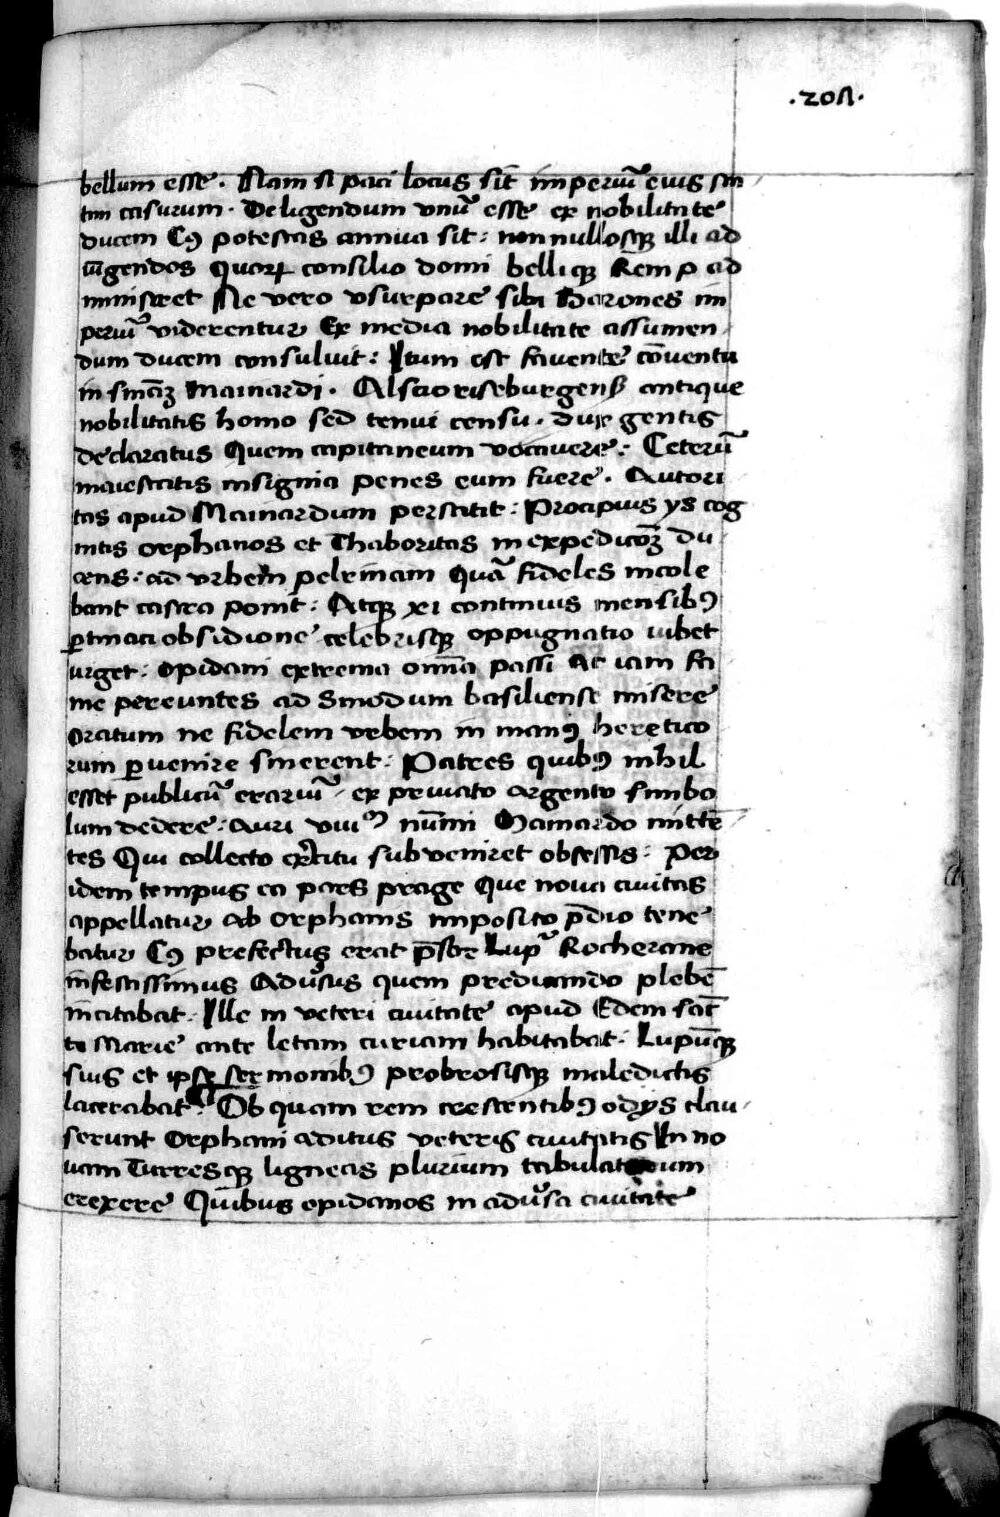 .201.
bellum esse. Nam si paci locus sit̄ imperiū eius sta
tim casurum. Deligendum vnū esse ex nobilitate
ducem Cꝰ potestas annua sit: non nullosqꝫ illi ad
iūgendos Quorꝝ consilio domi belliqꝫ Rem p ad
ministret Ne vero vsurpare sibi Barones im
periū viderentur Ex media nobilitate assumen
dum ducem consuluit: Itum est fauente cōuentu
in smāꝫ Mainardi. Alscio riseburgensꝭ antique
nobilitatis homo sed tenui censu. dux gentis
declaratus Quem capitaneum vocauere: Ceterū
maiestatis insignia penes eum fuere. Autori
tas apud Mainardum perstitit: Procipius ys cog
nitis orphanos et Thaboritas in expedicōꝫ du
cens: ad vrbem pelzinam Quā fideles incole
bant castra ponit: Atqꝫ xi continuis mensibꝰ
ꝑtinaci obsidione celebrisqꝫ oppugnatio iubet
urget: opidani extrema omīa passi Ac iam fa
me pereuntes ad Sinodum basiliense misere
oratum ne fidelem vrbem in manꝰ heretico
rum ꝑuenire sinerent: Patres quibꝰ nihil
esset publicū erariū. ex priuato argento simbo
lum dedere: auri viiiᵐ nūmi Mainardo mittē
tes Qui collecto ex̄ercitu subueniret obsessis: Per
idem tempus ea pars prage Que noua ciuitas
appellatur ab orphanis imposito p̄dio tene
batur Cꝰ prefectus erat p̄sbr Lupꝰ Rocherane
infestissimus Adūsus quem predicando plebē
incitabat. Ille in veteri ciuitate apud Edem sāc
te Marie ante letam curiam habitabat. Lupūqꝫ
suis et ipse sermonibꝰ probrosisqꝫ maledictis
lacerabat: Ob quam rem crescentibꝰ odys clau
serunt Orphani aditus veteris ciuitatis In no
uam Turresqꝫ ligneas plurium tabulatorum
erexere Quibus opidanos in adūsa ciuitate